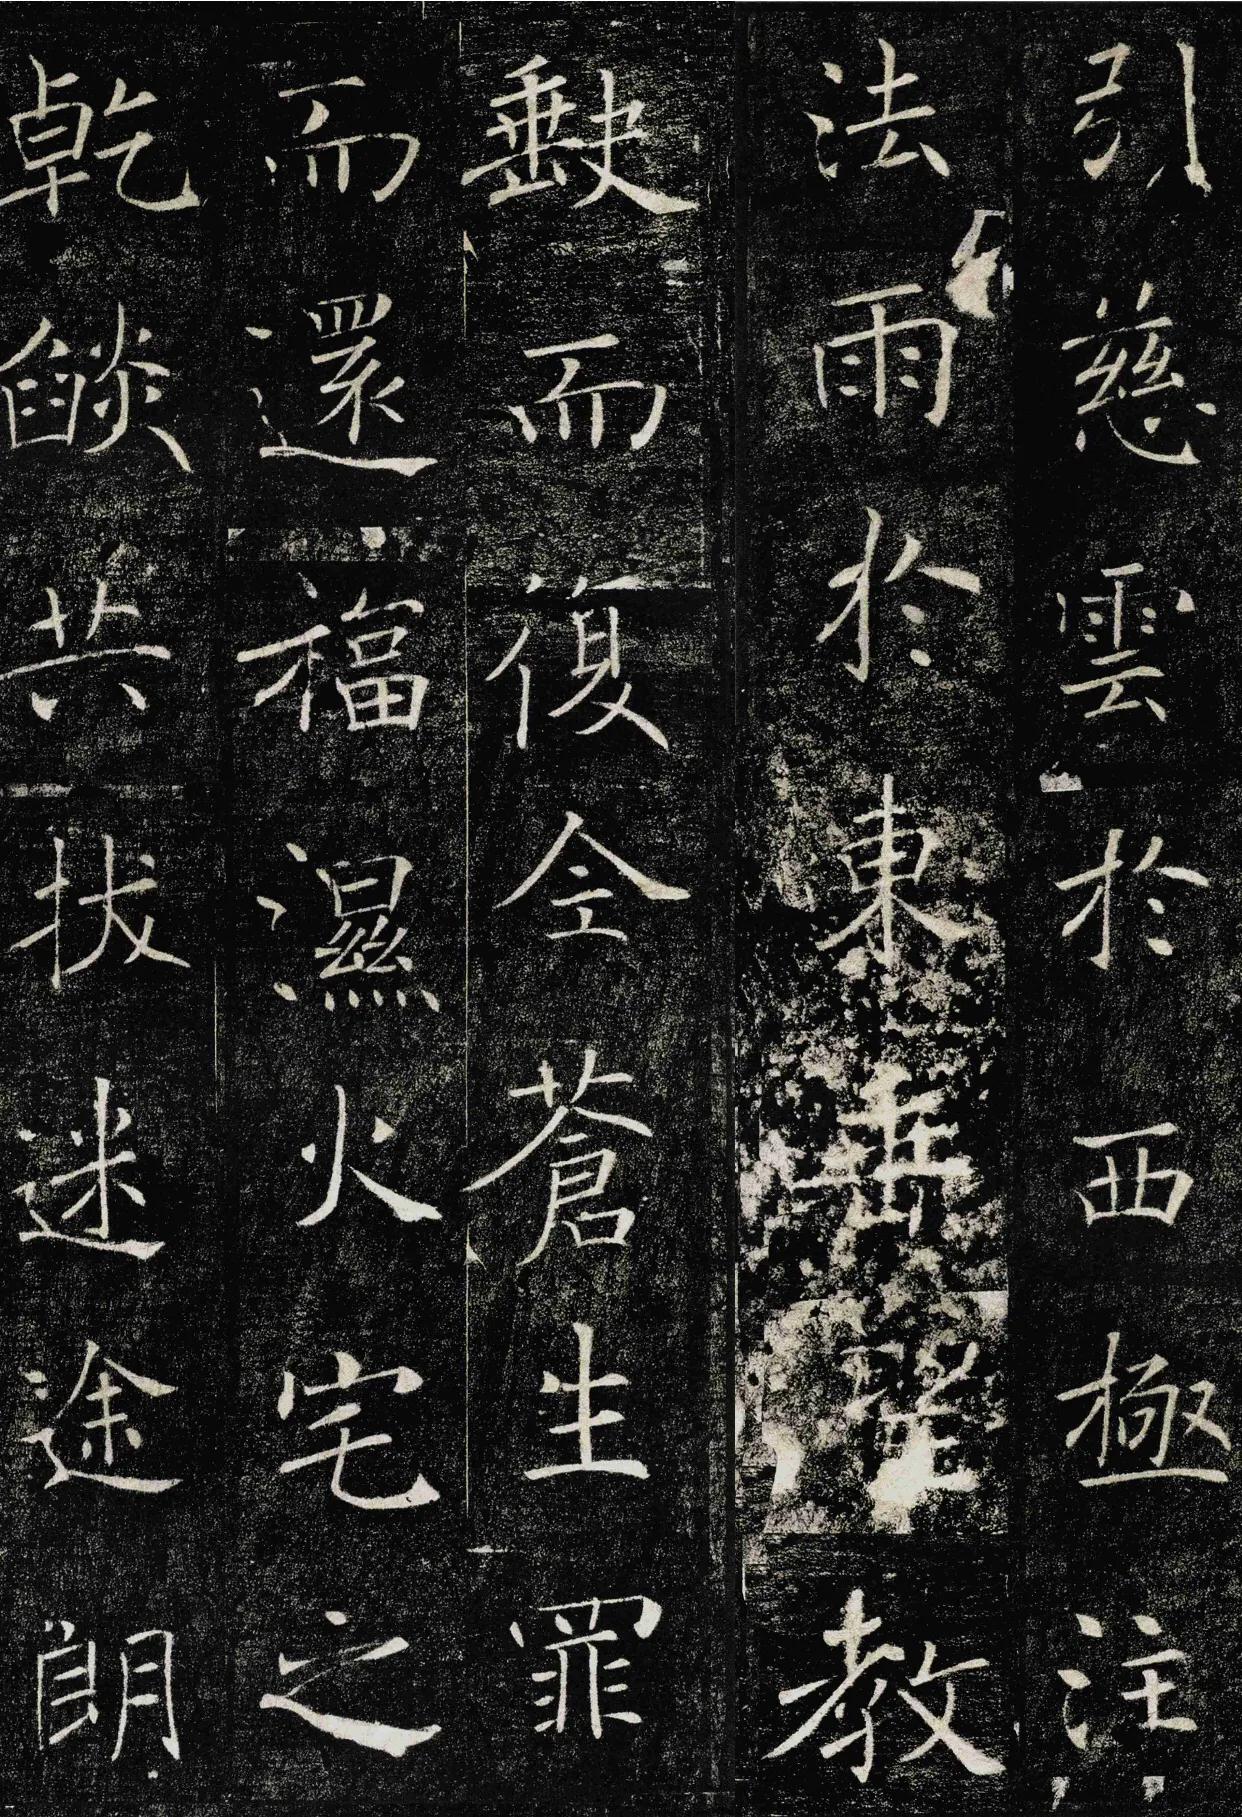 引慈雲於西極注
法雨於東垂聖教
缺而復全蒼生罪
而還福濕火宅之
乾燄共拔迷途朗